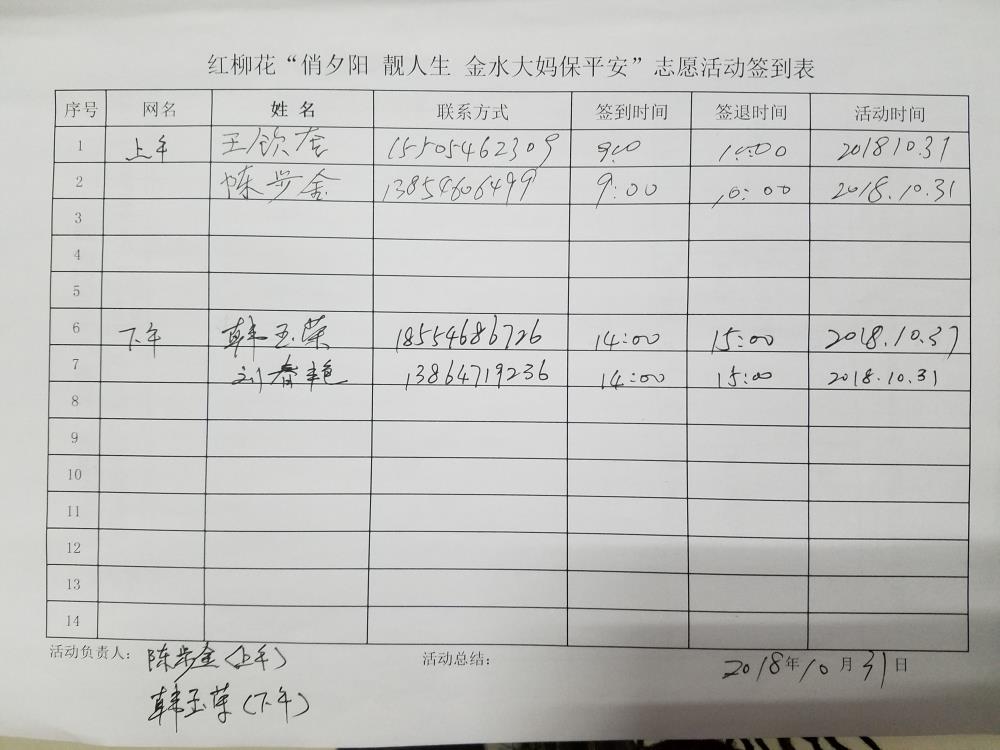 红柳花“俏夕阳 靓人生 金水大妈保平安”志愿活动签到表
序号 网名 姓名 联系方式 签到时间 签退时间 活动时间
1 上午 王钦奎 15505462309 9:00 10:00 2018 10.31
2 陈步金 13854606499 9:00 10:00 2018.10.31
3
4
5
6 下午 韩玉荣 18554686726 14:00 15:00 2018.10.31
7 刘春艳 13864719236 14:00 15:00 2018.10.31
8
9
10
11
12
13
14
活动负责人: 陈步金(上午) 活动总结: 2018年10月31日
韩玉荣(下午)